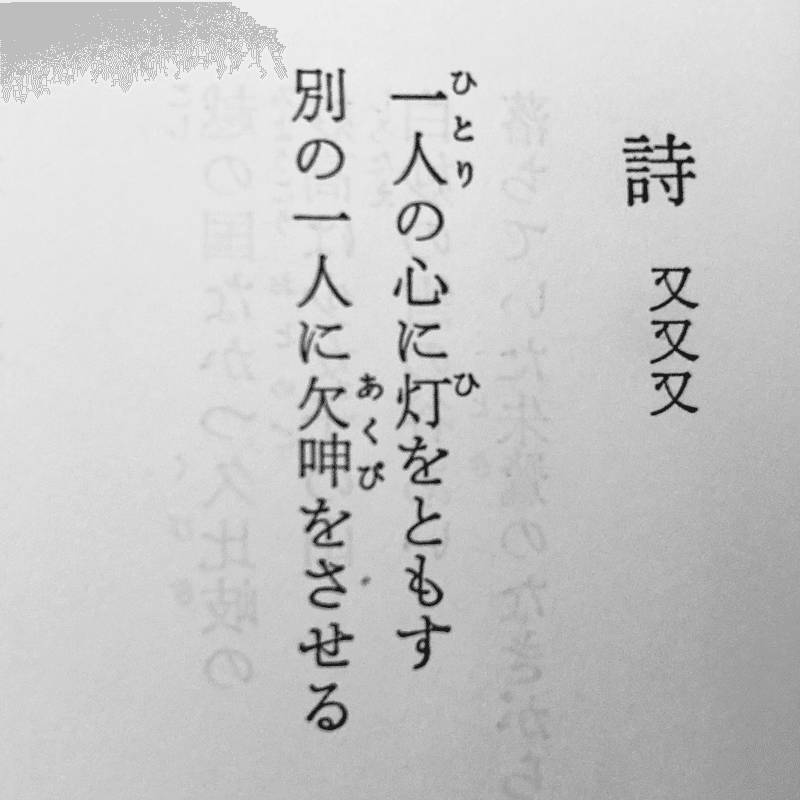 詩 又又又
一人の心に灯をともす
ひとり
ひ
別の一人に欠呻をさせる
あくび